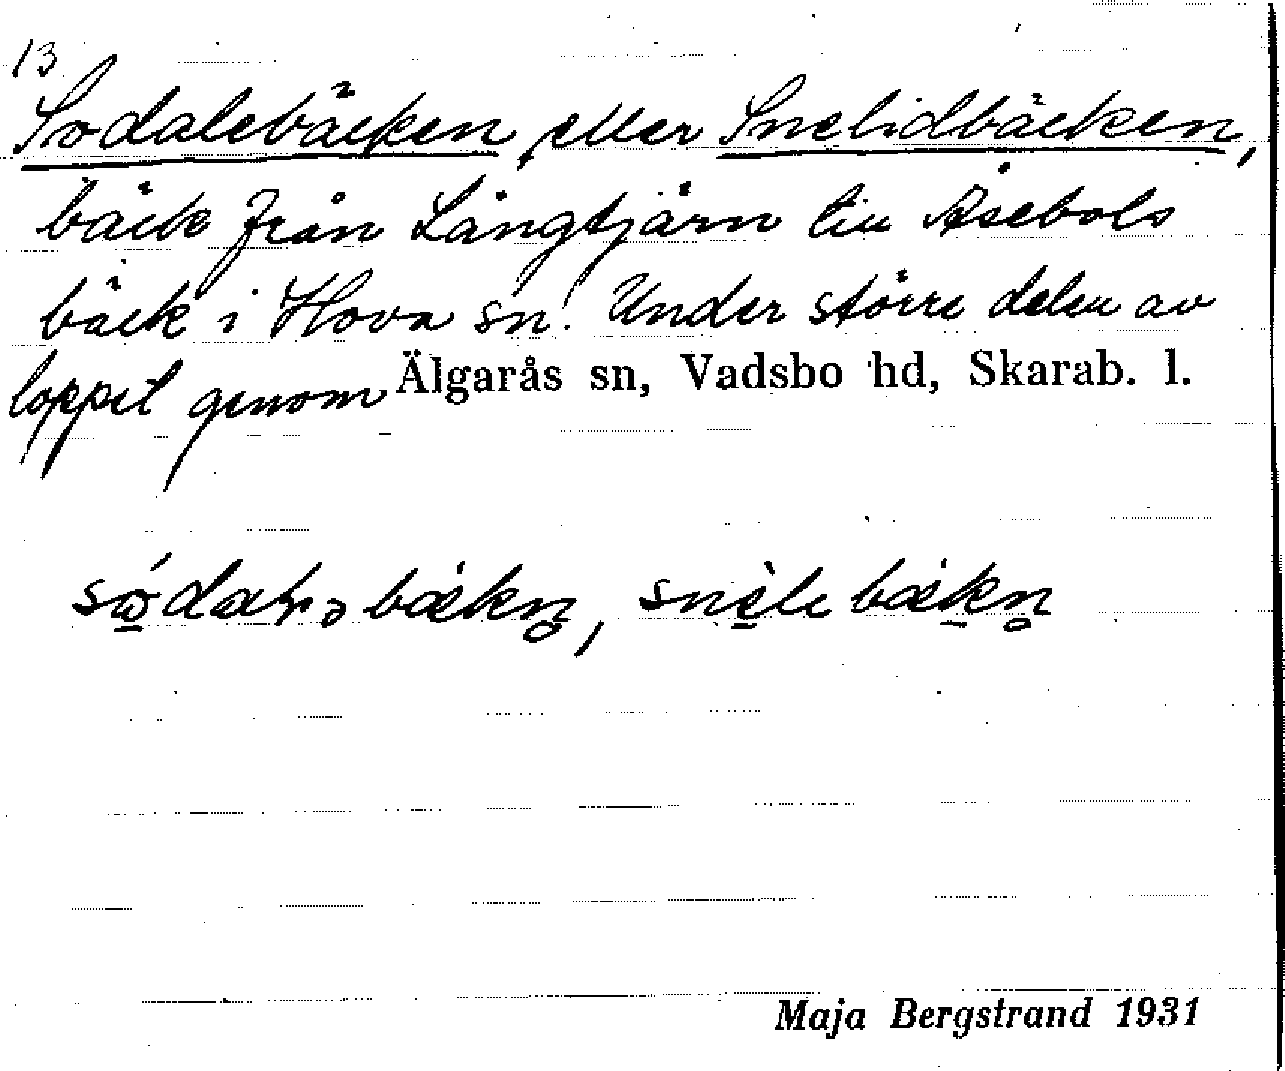 13
Sodalebäcken eller Snelidbäcken,
bäck från Långtjärn till Åsebols
bäck i Hova sn. Under större delen av
loppet genom Älgarås sn, Vadsbo hd, Skarab. l.
Maja Bergstrand 1931